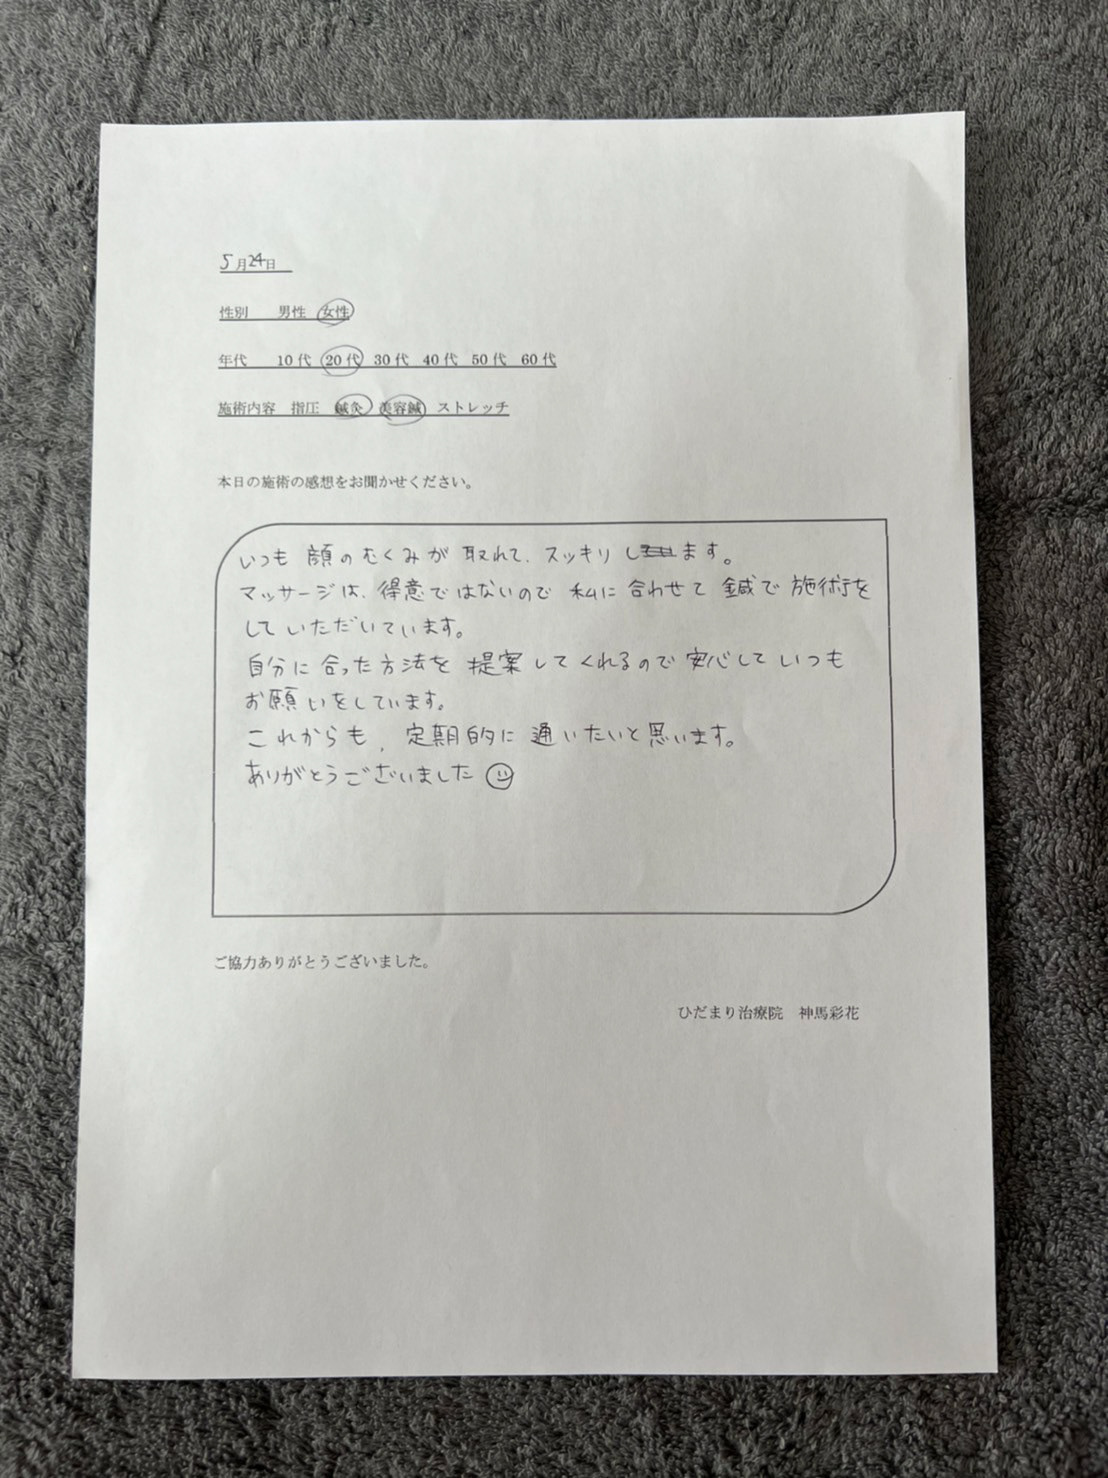 5月24日
性別 男性 女性
年代 10代 20代 30代 40代 50代 60代
施術内容 指圧 鍼灸 美容鍼 ストレッチ
本日の施術の感想をお聞かせください。
いつも 顔のむくみが 取れて、スッキリ します。
マッサージは、得意ではないので 私に 合わせて 鍼で 施術を
していただいています。
自分に 合った方法を 提案してくれるので 安心して いつも
お願いをしています。
これからも、定期的に 通いたいと思います。
ありがとうございました
ご協力ありがとうございました。
ひだまり治療院 神馬彩花